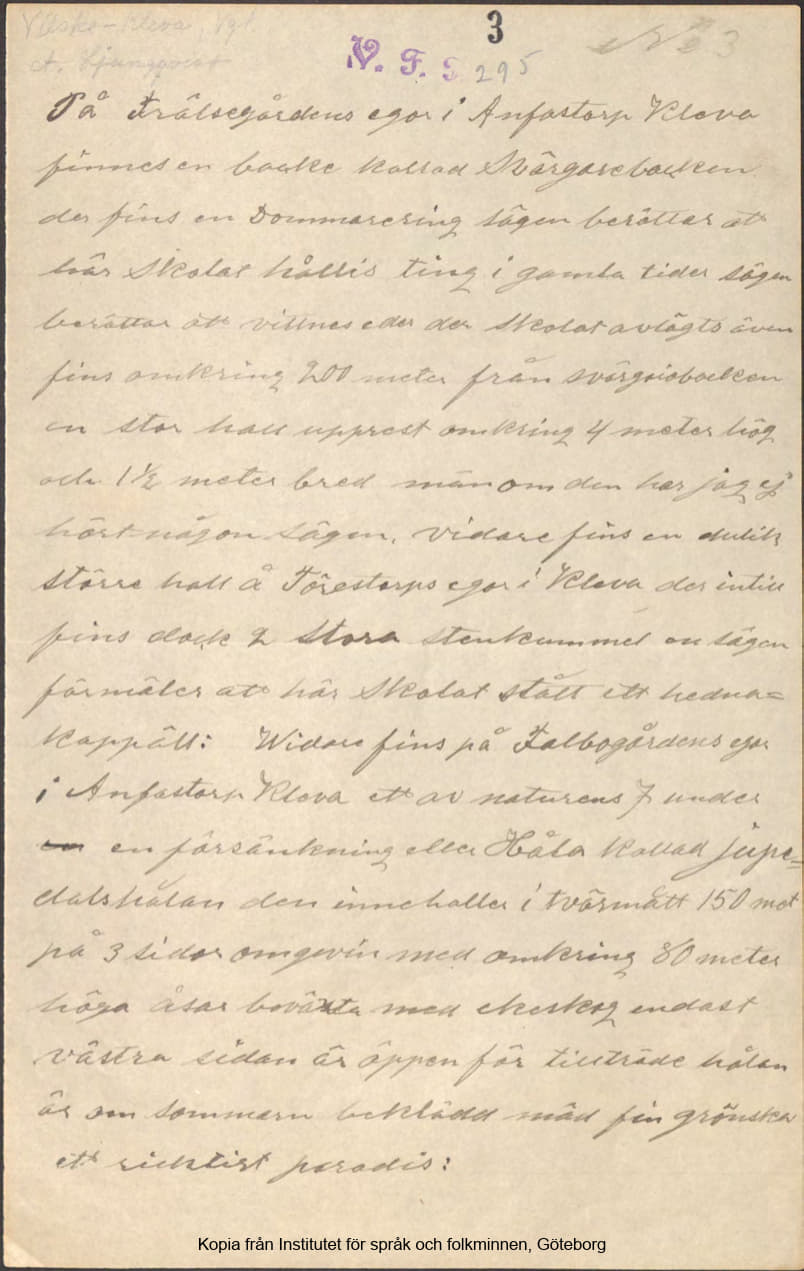 Vilske-Kleva, Vgl.
3
No 3
A. Ljungqvist
V. F. F. 295
På Frälsegårdens egor i Anfastorp Kleva
finnes en backe kallad Svärgarebacken
der fins en Dommarering sägen berättar att
här skolat hållis ting i gamla tider sägen
berättar att vittnes eder der skolat avlägts även
fins omkring 200 meter från svärgarebacken
en stor hall upprest omkring 4 meter hög
och 1½ meter bred män om den har jag ej
hört någon sägen. vidare fins en dulik
större hall å Torestorps egor i Kleva der intill
fins dock 2 stora stenkummel en sägen
förmäler att här skolat stått ett hedna=
kappäll: Widare fins på Falbogårdens egor
i Anfastorp Kleva ett av naturens 7 under
en försänkning eller Håla kallad jupe=
dalshålan den innehaller i tvärmått 150 met
på 3 sidor omgevin med omkring 80 meter
höga åsar beväxta med ekeskog endast
västra sidan är öppen för tillträde hålan
är om sommarn beklädd mäd fin grönska
ett ricktist paradis:
Kopia från Institutet för språk och folkminnen, Göteborg